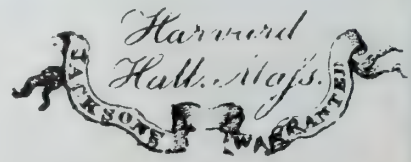 Harvard
Hall. Maſs.
JACKSONS WARRANTED